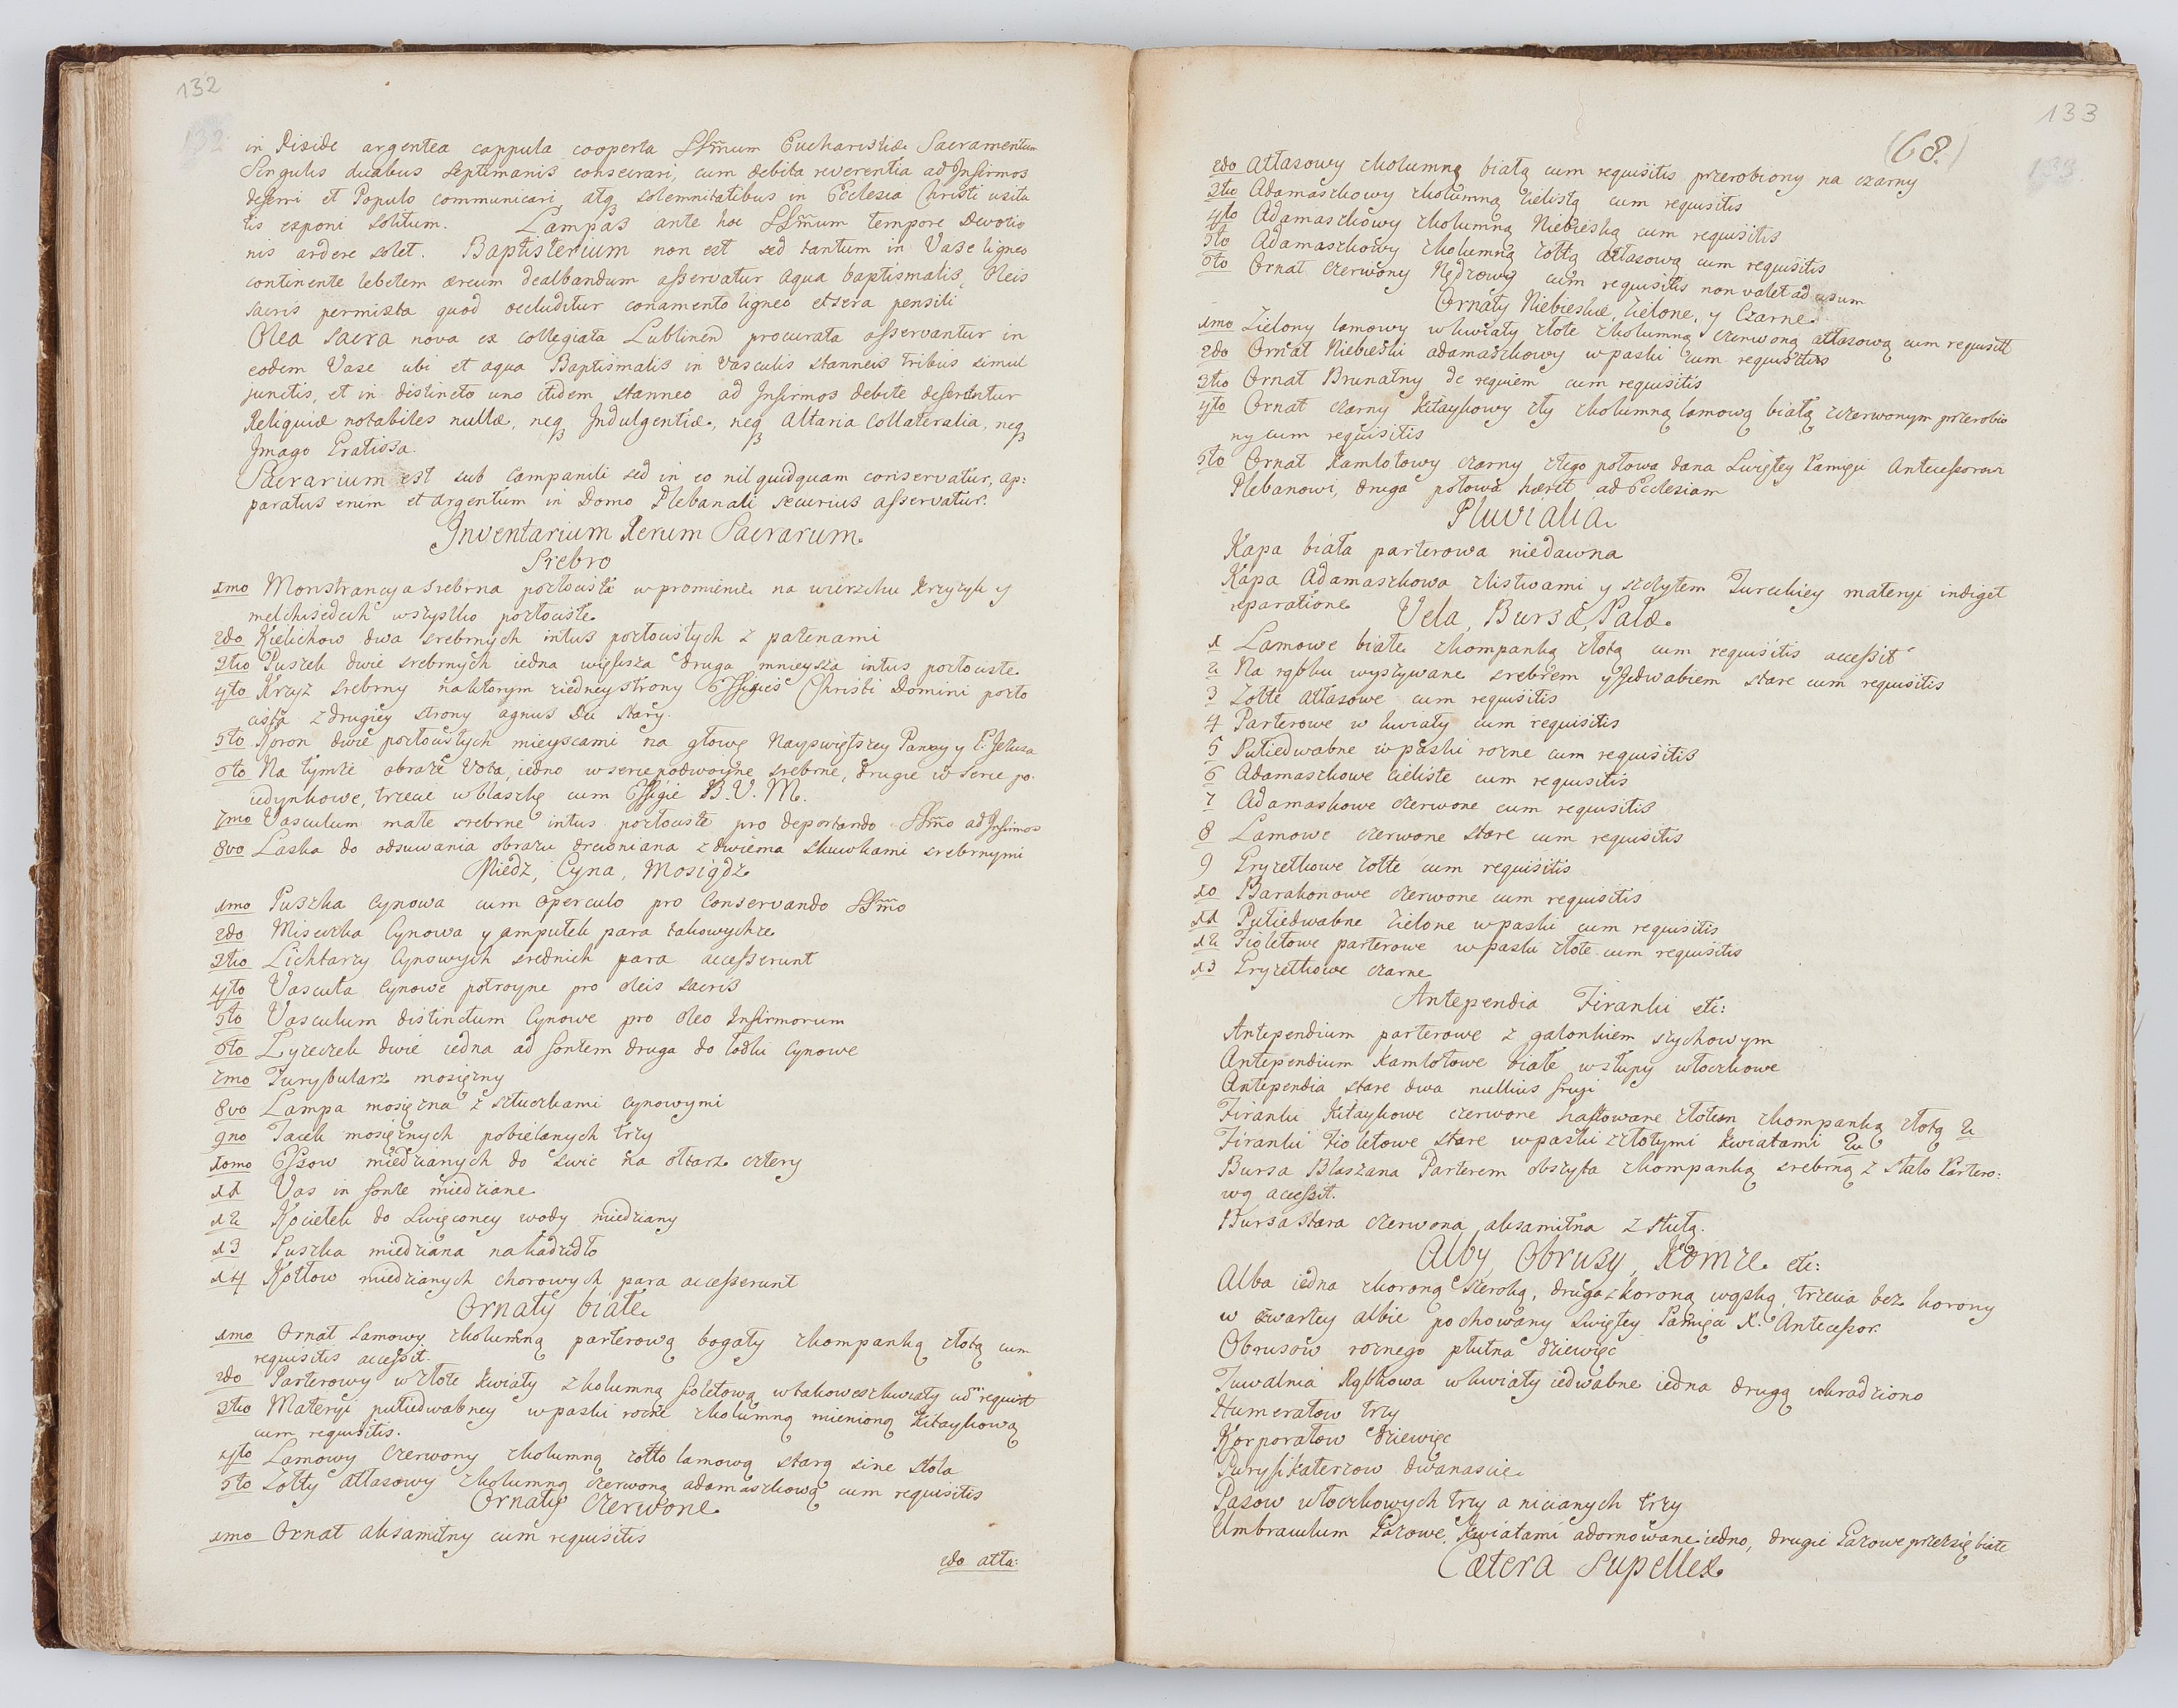 132
132
in Pixide argentea cappula cooperta SSm̃um Eucharistiæ Sacramentum
Singulis duabus septimanis consecrari, cum debita reverentia ad Infirmos
deferri et Populo communicari atq solemnitatibus in Ecclesia Christi usita
tis exponi solitum. Lampas ante hoc SSm̃um tempore Devotio
nis ardere solet. Baptisterium non est sed tantum in Vase ligneo
continente lebetem æreum dealbandum asservatur aqua baptismalis Oleis
sacris permixta quod occluditur conamento ligneo et sera pensili
Olea Sacra nova ex Collegiata Lublinen procurata asservantur in
eodem Vase ubi et aqua Baptismalis in Vasculis stanneis tribus simul
junctis, et in distincto uno itidem stanneo ad Infirmos debite deferuntur
Reliquiæ notabiles nullæ, neq Indulgentiæ, neq Altaria Collateralia, neq
Imago Gratiosa.
Sacrarium est sub Campanili sed in eo nil quidquam conservatur, ap:
paratus enim et argentum in Domo Plebanali securius asservatur.
Inventarium Rerum Sacrarum
Srebro
1mo Monstrancya srebrna pozłocista w promienie na wierzchu krzyzyk y
melchisedech wszystko pozłociste
2do Kielichow dwa srebrnych intus pozłocistych z patenami
3tio Puszek dwie srebrnych iedna większa druga mnieysza intus pozłociste
4to Krzyz srebrny naktorym ziedney strony Effigies Christi Domini pozło
cista z drugiey strony agnus Dei stary.
5to Koron dwie pozłocistych mieyscami na głowę Nayswiętszey Panny y P. Jezusa
6to Na tymze obrazie Vota, iedno w serce podwoyne srebrne, drugie w Serce po:
iedynkowe, trzecie w blaszkę cum Effigie B. V. M.
7mo Vasculum małe srebrne intus pozłociste pro deportando SSm̃o ad Infirmos
8vo Laska do odsuwania obrazu drewniana z dwiema skuwkami srebrnymi
Miedz, Cyna, Mosiądz
1mo Puszka Cynowa cum operculo pro Conservando SSm̃o
2do Miseczka Cynowa y ampułek para takowychze
3tio Lichtarzy Cynowych srednich para accesserunt
4to Vascula Cynowe potroyne pro oleis sacris
5to Vasculum distinctum Cynowe pro oleo Infirmorum
6to Łyzeczek dwie iedna ad fontem druga do łodki Cynowe
7mo Turybularz mosięzny
8vo Lampa mosięzna z sztuczkami cynowymi
9no Tacek mosięznych pobielanych trzy
10mo Essow miedzianych do swic na ołtarz cztery
11 Vas in fonte miedziane
12 Kociełek do Swięconey wody miedziany
13 Puszka miedziana na kadzidło
14 Kotłow miedzianych chorowych para accesserunt
Ornaty białe
1mo Ornat Lamowy zkolumną parterową bogaty zkompanką złotą cum
requisitis accessit.
2do Parterowy w złote kwiaty z kolumną fioletową w takowesz kwiaty cum requisit
3tio Materyi pułiedwabney w paski rozne zkolumną mienioną kitaykową
cum requisitis.
4to Lamowy czerwony zkolumną zółto lamową starą sine stola
5to Zołty atłasowy zkolumną czerwoną adamaszkową cum requisitis
Ornaty Czerwone
1mo Ornat aksamitny cum requisitis
2do atła:
133
(68.)
133
2do Atłasowy zkolumną białą cum requisitis przerobiony na czarny
3tio Adamaszkowy zkolumną cielistą cum requisitis
4to Adamaszkowy zkolumną Niebieską cum requisitis
5to Adamaszkowy zkolumną zołtą atłasową cum requisitis
6to Ornat Czerwony Nędzowy cum requisitis non valet ad usum
Ornaty Niebieskie, Zielone, y Czarne
1mo Zielony lamowy w kwiaty złote zkolumną czerwoną atłasową cum requisit
2do Ornat Niebieski adamaszkowy w paski cum requisitis
3tio Ornat Brunatny de requiem cum requisitis
4to Ornat czarny kitaykowy zły zkolumną lamową białą zczerwonym przerobio
ny cum requisitis
5to Ornat kamlotowy czarny ztego połowa dana Swiętey Pamięci Antecessorowi
Plebanowi, druga połowa hæret ad Ecclesiam
Pluvialia
Kapa biała parterowa niedawna
Kapa Adamaszkowa zlistwami y szczytem Tureckiey materyi indiget
reparatione
Vela, Bursæ, Palæ
1 Lamowe białe zkompanką złotą cum requisitis accessit
2 Na rąbku wyszywane srebrem y Jedwabiem stare cum requisitis
3 Zołte atłasowe cum requisitis
4 Parterowe w kwiaty cum requisitis
5 Pułiedwabne w paski rozne cum requisitis
6 Adamaszkowe cieliste cum requisitis
7 Adamaskowe czerwone cum requisitis
8 Lamowe czerwone stare cum requisitis
9 Gryzetkowe zołte cum requisitis
10 Barakonowe czerwone cum requisitis
11 Pułiedwabne zielone w paski cum requisitis
12 Fioletowe parterowe w paski złote cum requisitis
13 Gryzetkowe czarne
Antependia Firanki etc:
Antependium parterowe z galonkiem szychowym
Antependium kamlotowe białe w słupy włoczkowe
Antependia stare dwa nullius frugi
Firanki kitaykowe czerwone haftowane złotem zkompanką złotą 2
Firanki Fioletowe stare w paski z złotymi kwiatami 2
Bursa Blaszana Parterem obszyta zkompanką srebrną z stułą Partero:
wą accessit.
Bursa stara czerwona aksamitna z stułą.
Alby, Obrusy, Komze etc:
Alba iedna zkoroną szeroką, druga z koroną wąską, trzecia bez korony
w czwartey albie pochowany Swiętey Pamięci X. Antecessor.
Obrusow roznego płutna dziewięc
Tuwalnia Rąbkowa w kwiaty iedwabne iedna drugą ukradziono
Humerałow trzy
Korporałow dziewięc
Puryfikaterzow dwanascie
Pasow włoczkowych trzy a nicianych trzy
Umbraculum Gazowe, kwiatami adornowane iedno, drugie Gazowe przezsię białe
Cætera Supellex